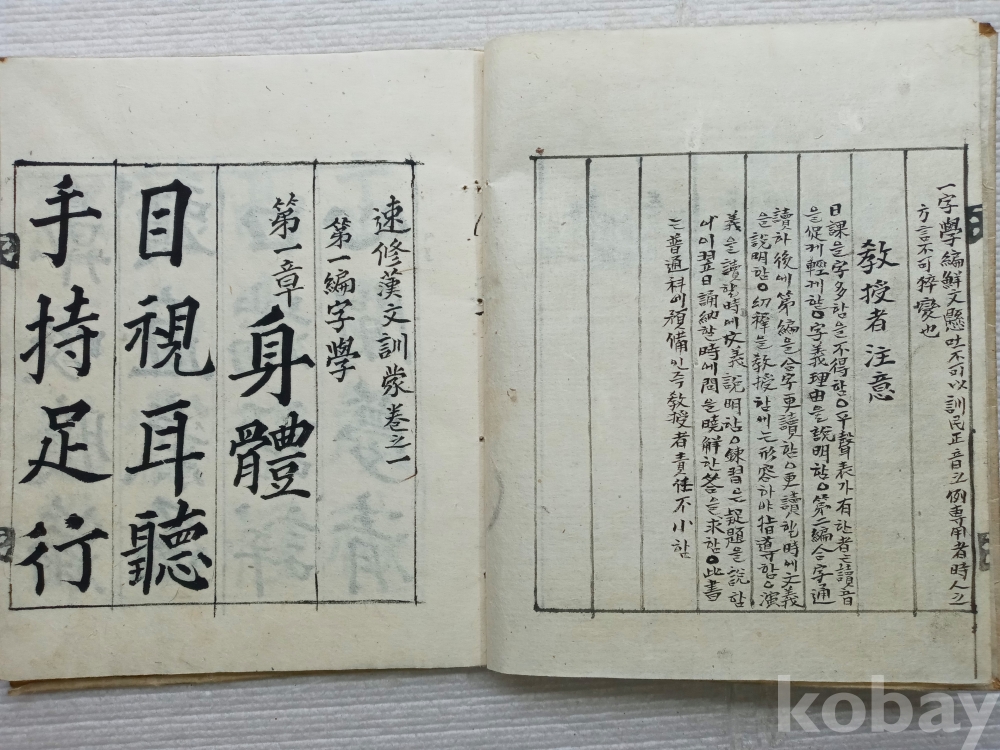 一字學編鮮文懸吐不可以訓民正音之例專用者時人之
方言不可猝變也
敎授者注意
日課을字多함을不得함○平聲表가有한者는讀音
을促케輕게함○字義理由을說明함○第二編合字通
讀하後에第編을合字更讀함○更讀할時에文義
을說明함○幼穉을敎授함에는形容하야指導함○演
義을讀할時에文義說明함○練習은疑題을說함
이翌日誦納할時에問을曉解한答을求함○此書
는普通科에預備인즉敎授者責任不小함
速修漢文訓蒙卷之一
第一編字學
第一章 身體
目視耳聽
手持足行
kobay